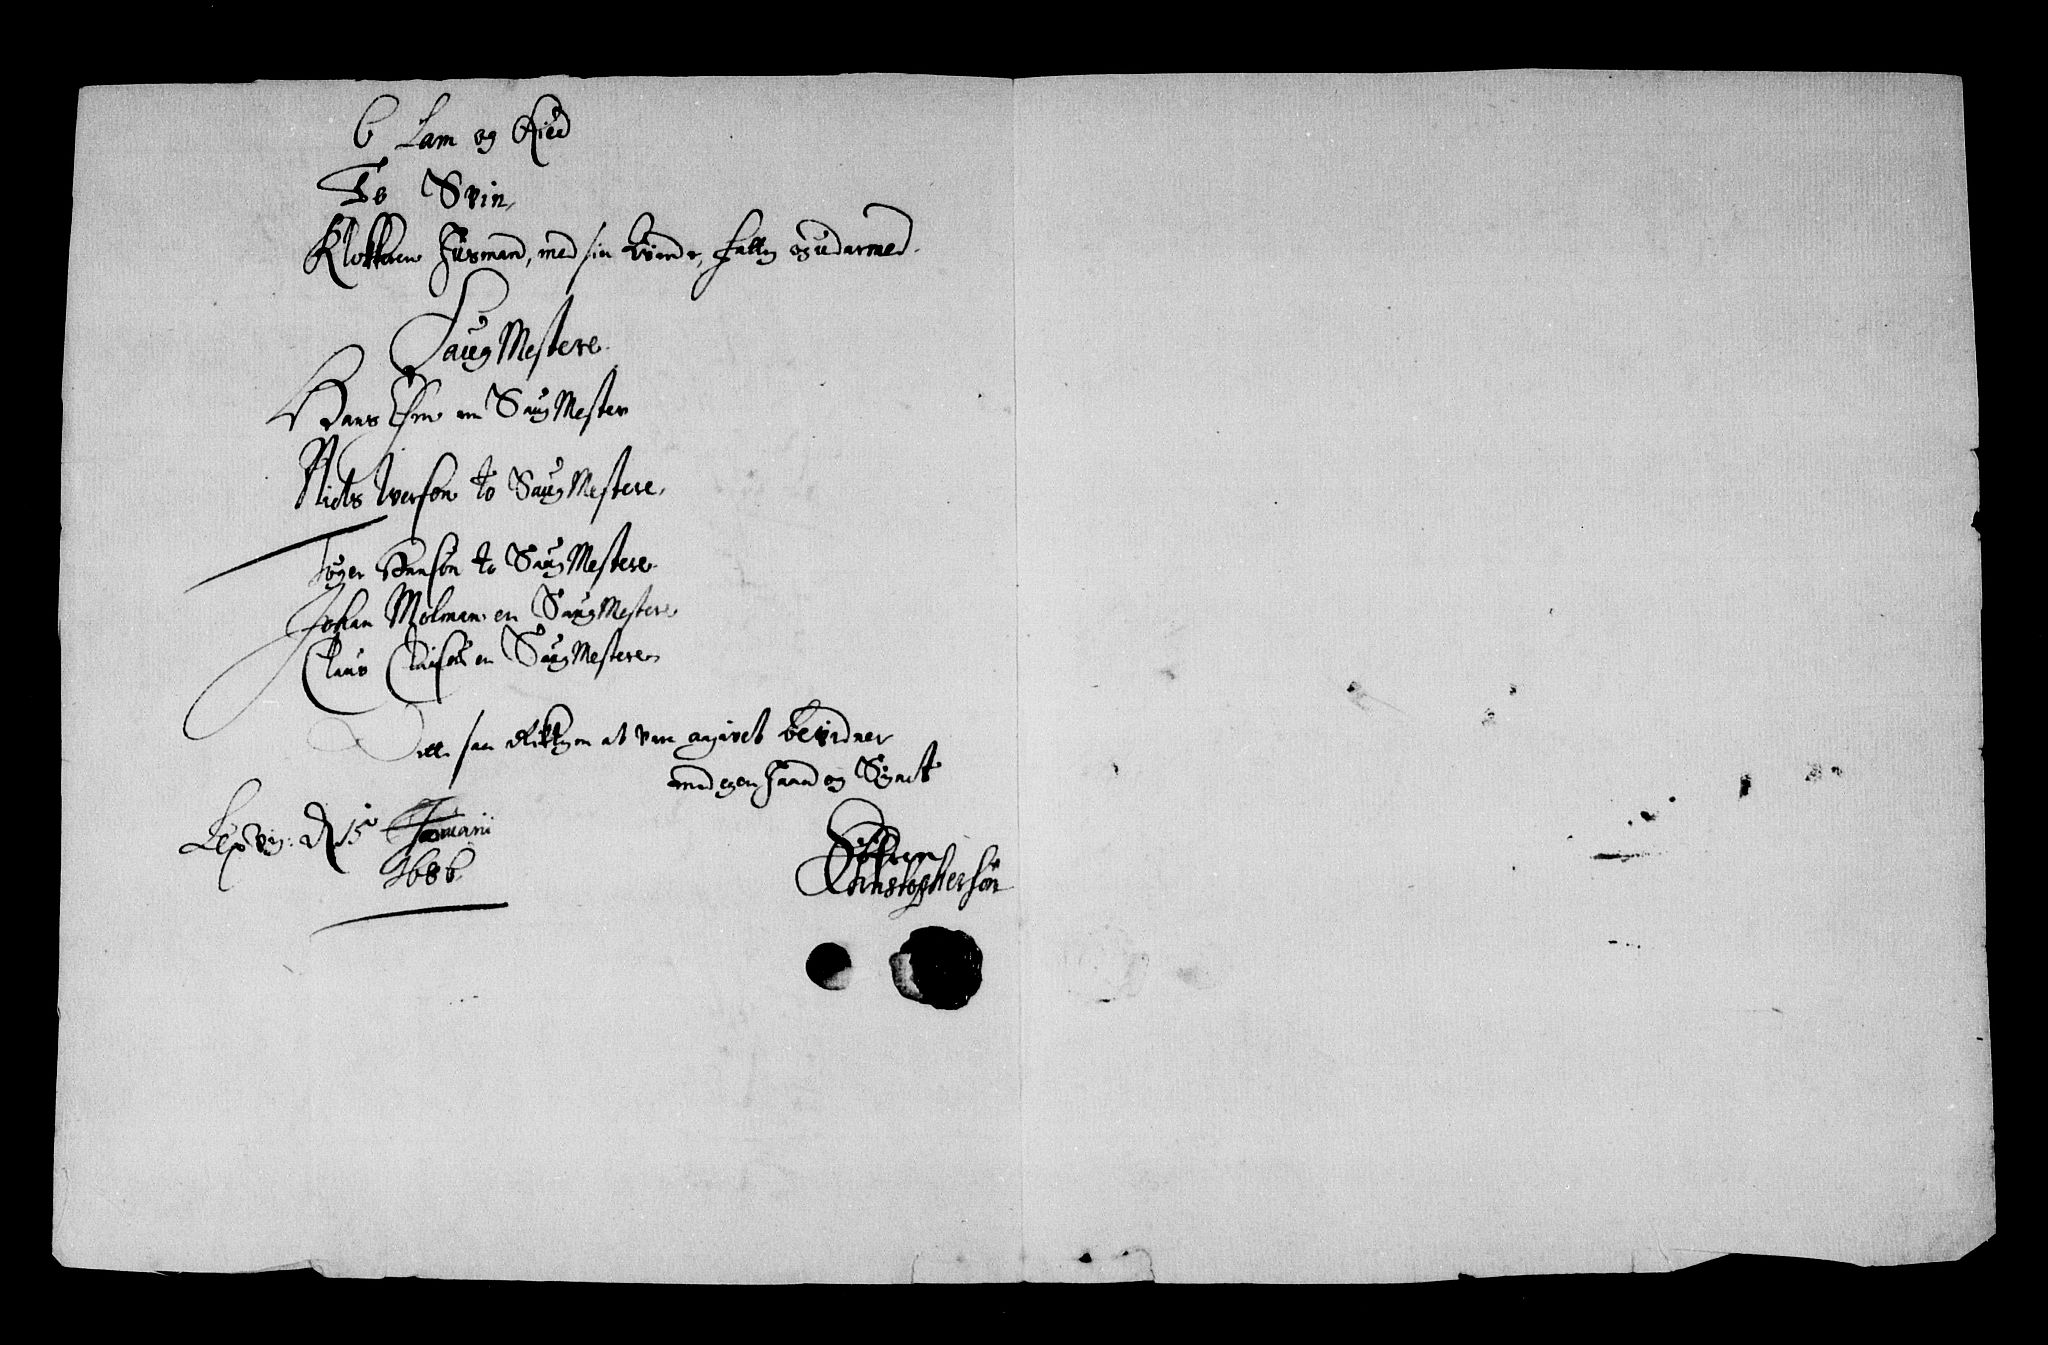 6 Lam og Kied
To Svin,
Klokkeren Husmand, med sin Qvinde, fattig og udarmed.
Saug Mestere
Hans en Saug Mester
Niels Iverson to Saug Mestere,
Hanson to Saug Mestere
Johan Molman en Saug Mestere
Claus Clausen en Saug Mestere
Dette saa Rigtigen at vere angivet bevidner
med egen Haand og Signet
Lexvig: d 15 Januarii
1686
Søfren
Christophersøn